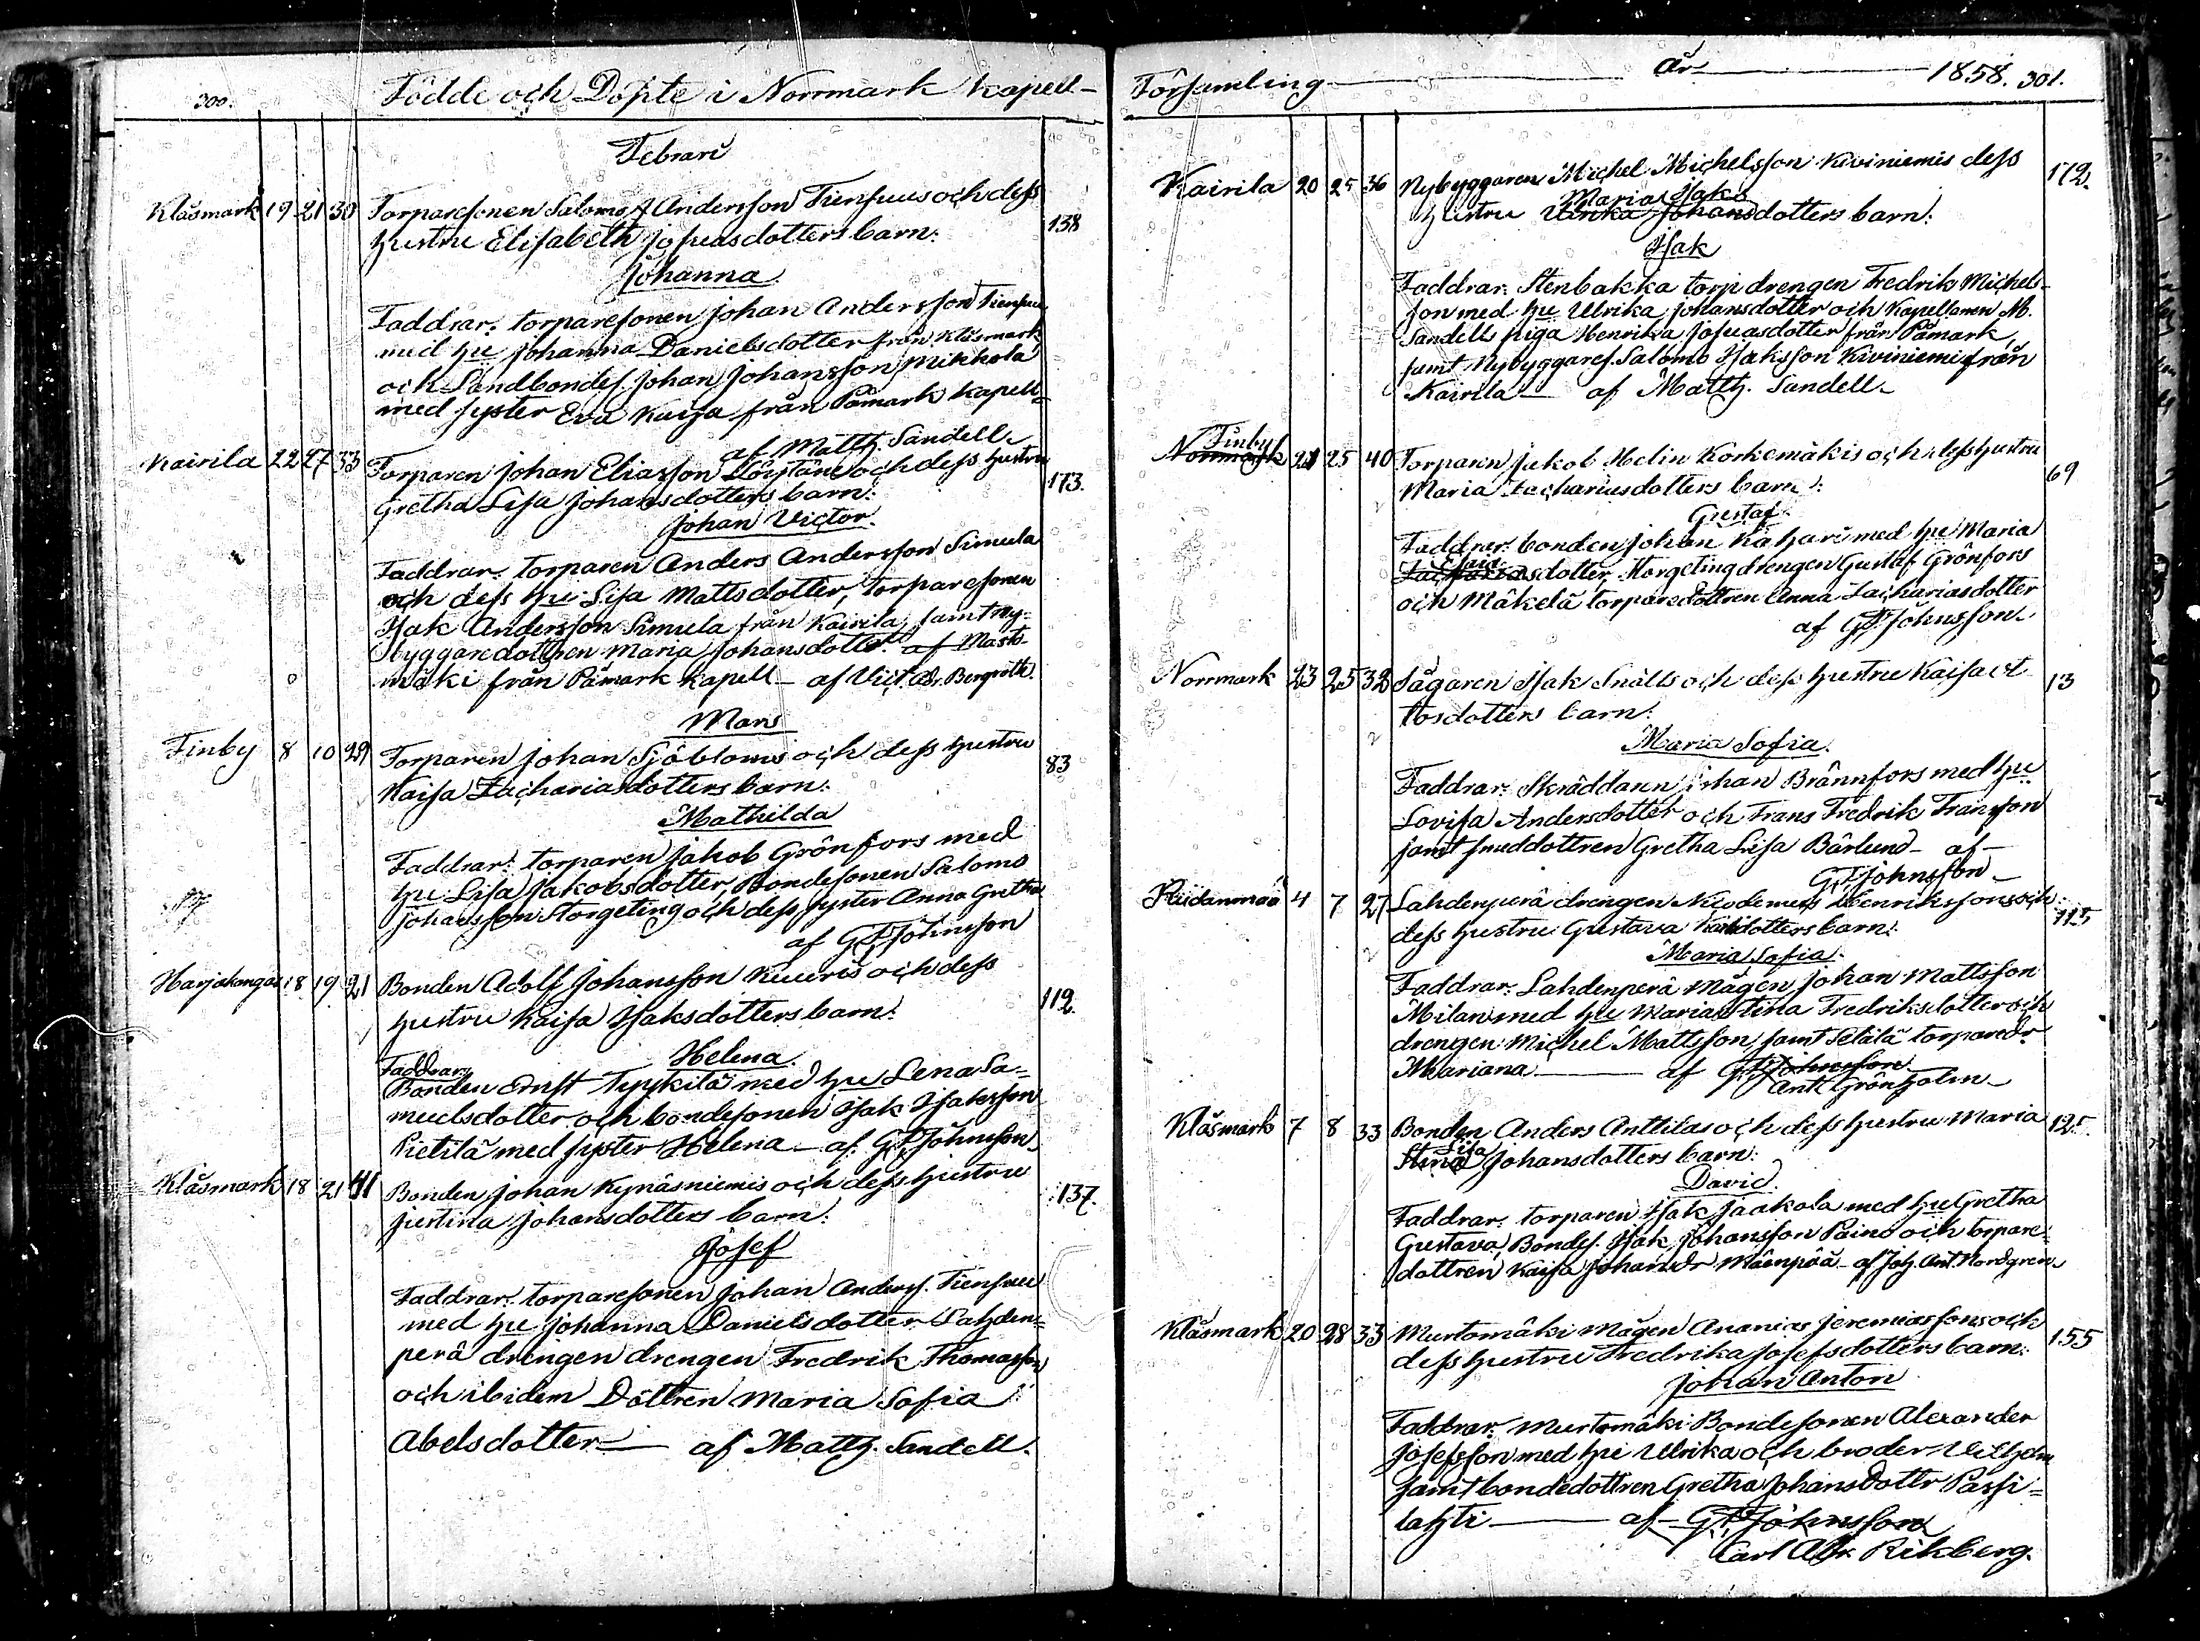 300. Födde och Döpte i Norrmark Kapell-
Februari
Klåsmark 19 21 30 Torparesonen Salomo Andersson Tiensuus och dess 138
hustru Elisabeth Josuasdotters barn:
Johanna
Faddrar: torparesonen Johan Andersson Tiensuu
med hu Johanna Danielsdotter från Klåsmark
och Landbondes. Johan Johansson Mikkola
med syster Eva Kaisa från Påmark kapell-
af Matth. Sandell
Kairila 22 27 33 Torparen Johan Eliasson och dess hustru 173.
Gretha Lisa Johansdotters barn:
Johan Victor.
Faddrar: torparen Anders Andersson Simula
och dess hu: Lisa Mattsdotter, torparesonen
Isak Andersson Simula från Kairila, samt ny-
byggaredottren Maria Johansdotter af Masto-
mäki från Påmark kapell - af Vict. Adr. Bergroth.
Mars
Finby 8 10 29 Torparen Johan Sjöbloms och dess hustru 83
Kaisa Zachariasdotters barn:
Mathilda
Faddrar: torparen Jakob Grönfors med
hu: Lisa Jakobsdotter, Bondesonen Salomo
Johansson Storgeting och dess syster Anna Gretha
af G. F. Johnsson
Harjakangas 18 19 21 Bonden Adolf Johansson Kuuris och dess 119.
hustru Kaisa Isaksdotters barn:
Helena.
Faddrar:
Bonden Ernst Tyykilä med hu Lena Sa-
muelsdotter och bondesonen Isak Isaksson
Pietilä med syster Helena - af G. F. Johnsson
Klåsmark 18 21 41 Bonden Johan Kynäsniemis och dess hustru 137.
Justina Johansdotters barn:
Josef
Faddrar: torparesonen Johan Anderss. Tiensuu
med hu Johanna Danielsdotter Lahden-
perä drengen drengen Fredrik Thomasson
och ibidem Dottren Maria Sofia
Abelsdotter - af Matth. Sandell.
Församling år 1858. 301.
Kairila 20 25 36 Nybyggaren Michel Michelsson Kiviniemis dess 172.
Maria Isaks
hustru Ulrika Johansdotters barn:
Isak
Faddrar: Stenbakka torp drengen Fredrik Michels-
son med hu Ulrika Johansdotter och Kapellanen M.
Sandells piga Henrika Josuasdotter från Påmark,
samt Nybyggares. Salomo Isaksson Kiviniemi från
Kairila - af Matth. Sandell
Finby
Norrmark 21 25 40 Torparen Jakob Melin Korkemäkis och dess hustru 69
Maria Zachariasdotters barn:
Gustaf.
Faddrar: bonden Johan Kahari med hu Maria
Zachariasdotter, Storgeting drengen Gustaf Grönfors
och Mäkelä torparedottren Anna Zachariasdotter
af G. F. Johnsson
Norrmark 23 25 32 Sågaren Isak Snälls och dess hustru Kaisa et 13
tosdotters barn:
Maria Sofia.
Faddrar: Skräddaren Johan Brännfors med hu
Lovisa Andersdotter och Frans Fredrik Fransson
samt smeddottren Gretha Lisa Bärlund - af
G. F. Johnsson
4 7 27 Lahdenperä drengen Nikodemus Henrikssons och 115
dess hustru Gustava Karlsdotters barn:
Maria Sofia.
Faddrar: Lahdenperä Mågen Johan Mattsson
Milan med hu Maria Stina Fredriksdotter och
drengen Michel Mattsson, samt Setälä torparedr
Mariana - af G. F. Johnsson
Ant. Grönholm
Klåsmark 7 8 33 Bonden Anders Anttilas och dess hustru Maria 125.
Lisa
Stina Johansdotters barn:
David.
Faddrar: torparen Isak Jaakola med hu Gretha
Gustava, Bondes. Isak Johansson Paino och torpare-
dottren Kaisa Johansdr Mäenpää - af Joh. Ant. Nordgren
Klåsmark 20 28 33 Murtomäki Mågen Ananias Jeremiassons och 155
dess hustru Fredrika Josefsdotters barn:
Johan Anton
Faddrar: Murtomäki Bondesonen Alexander
Josefsson med hu Ulrika och broder Vilhelm
samt bondedottren Gretha Johansdottr Passi-
lahti - af G. F. Johnsson
Carl Alfr. Rikberg.